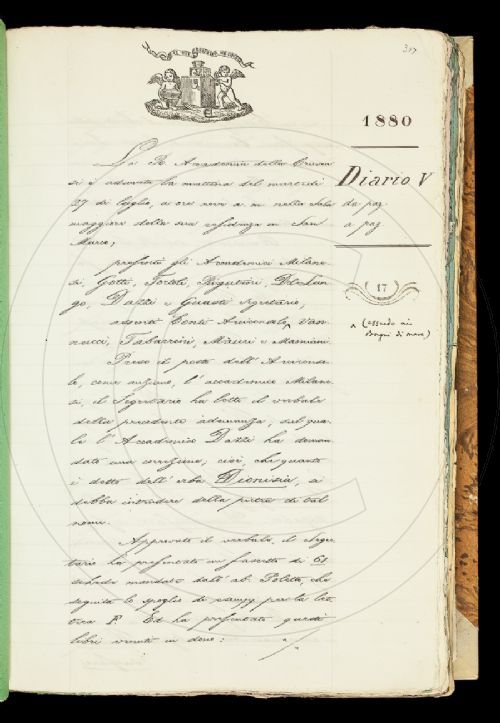 317
1880
Diario V
da pag
a pag
17
^ (essendo ai
Bagni di mare)
La R. Accademia della Crusca
si è adunata la mattina del martedì
27 di luglio, a ore nove a m nella Sala
maggiore della sua residenza in San
Marco;
presenti gli Accademici Milane-
si, Gotti, Tortoli, Rigutini, Del Lun-
go, Dazzi e Guasti Segretario;
assenti Conti Arciconsolo ^, Van-
nucci, Tabarrini, Mauri e Mamiani.
Preso il posto dell'Arciconso-
lo, come anziano, l'accademico Milane-
si, il Segretario ha letto il verbale
della precedente adunanza; sul qua-
le l'Accademico Dazzi ha doman-
dato una correzione; cioè, che quanto
è detto dell'erba Dionisia, si
debba intendere della pietra di tal
nome.
Approvato il verbale, il Segre-
tario ha presentato un fascetto di 61
schede mandato dall' ab. Poletto, che
seguita lo spoglio di esempj per la let-
tera F. Ed ha presentato questi
libri venuti in dono: